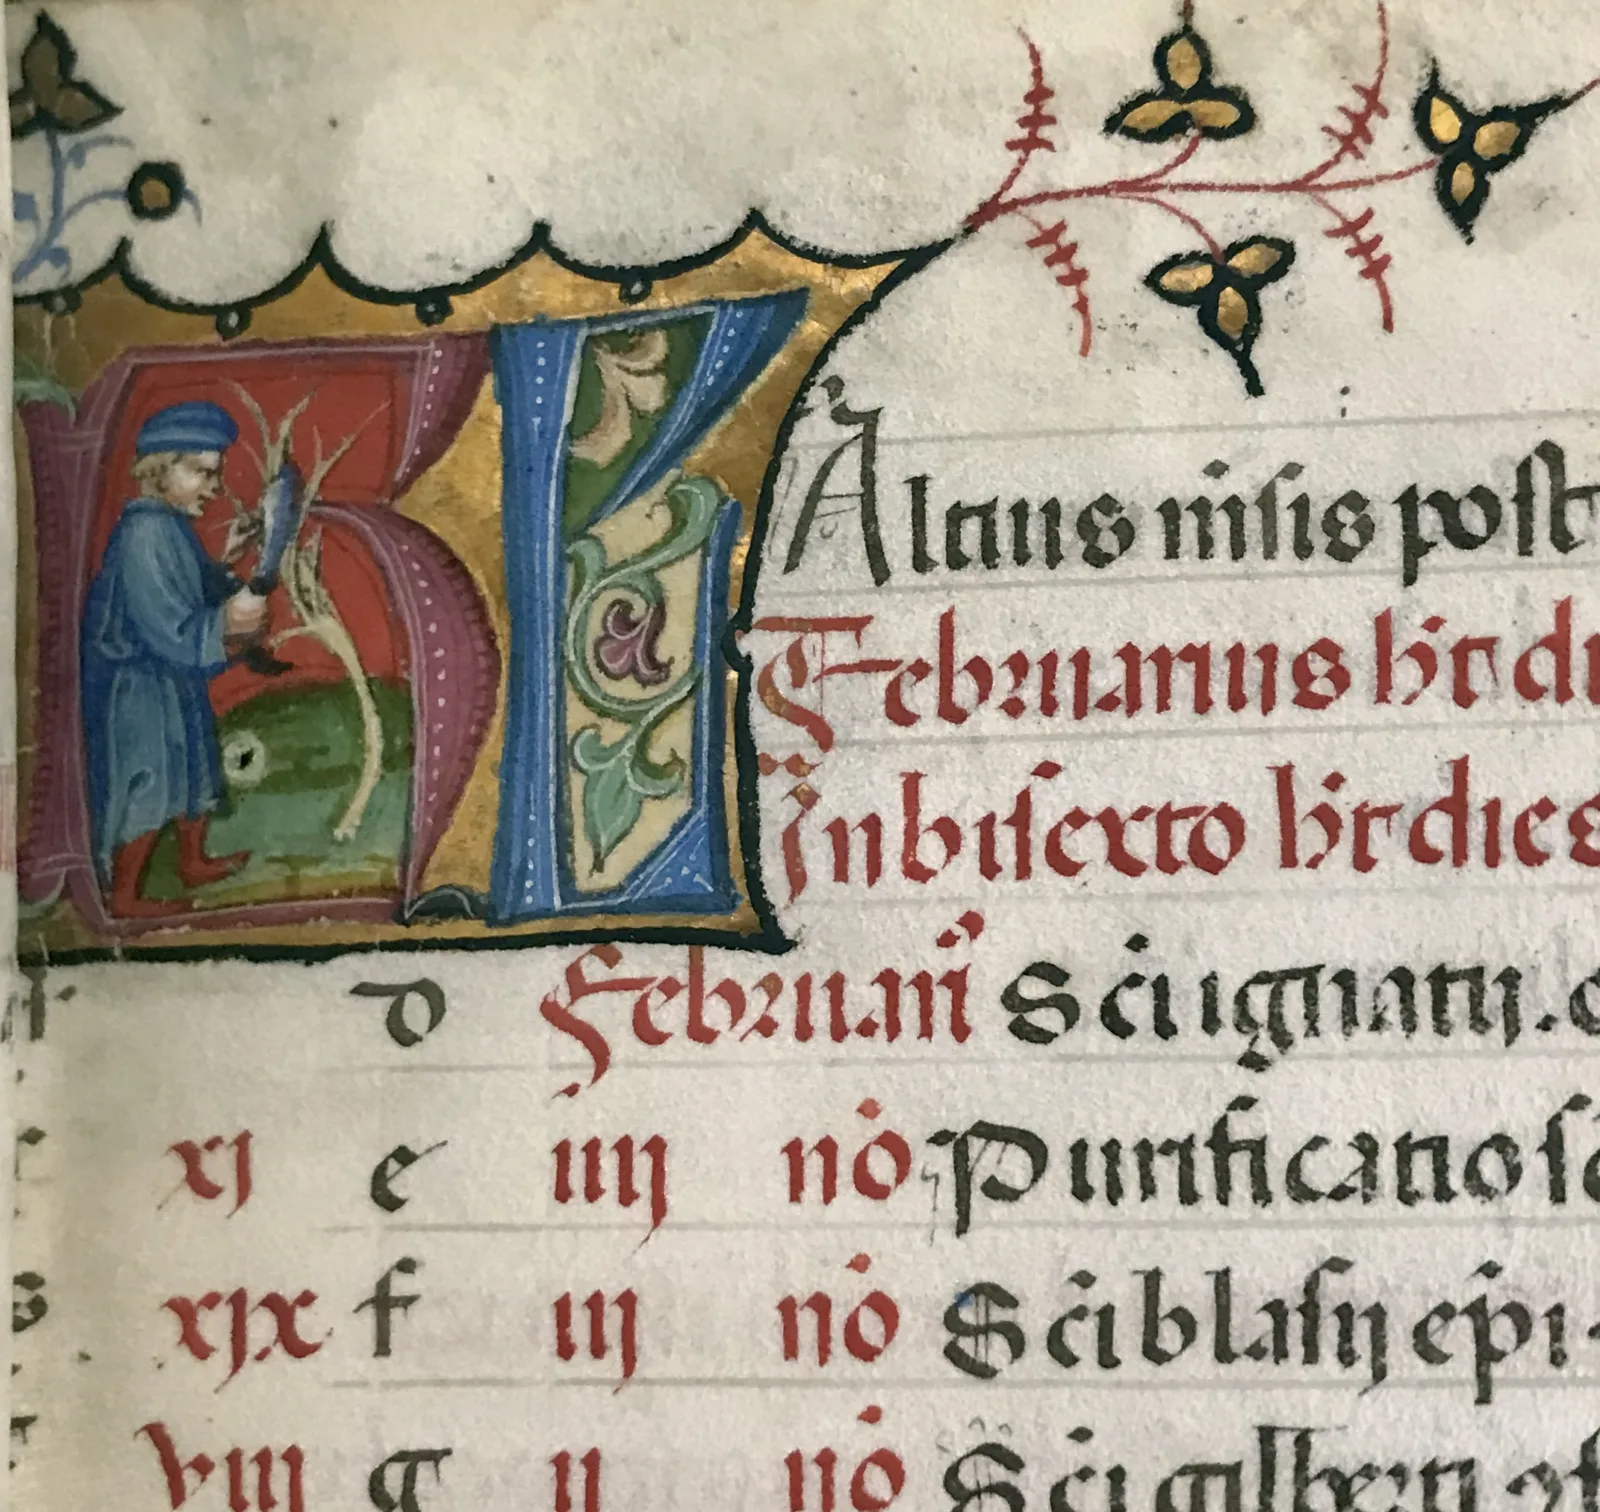 KL
Altius nisis post
Februarius ht di
In bisexto ht dies
d Februarii Sci ignatii.
xj e iiij no Purificatio sc
xjx f iij no Sci blasij epi.
viij g ij no Sci gilberti